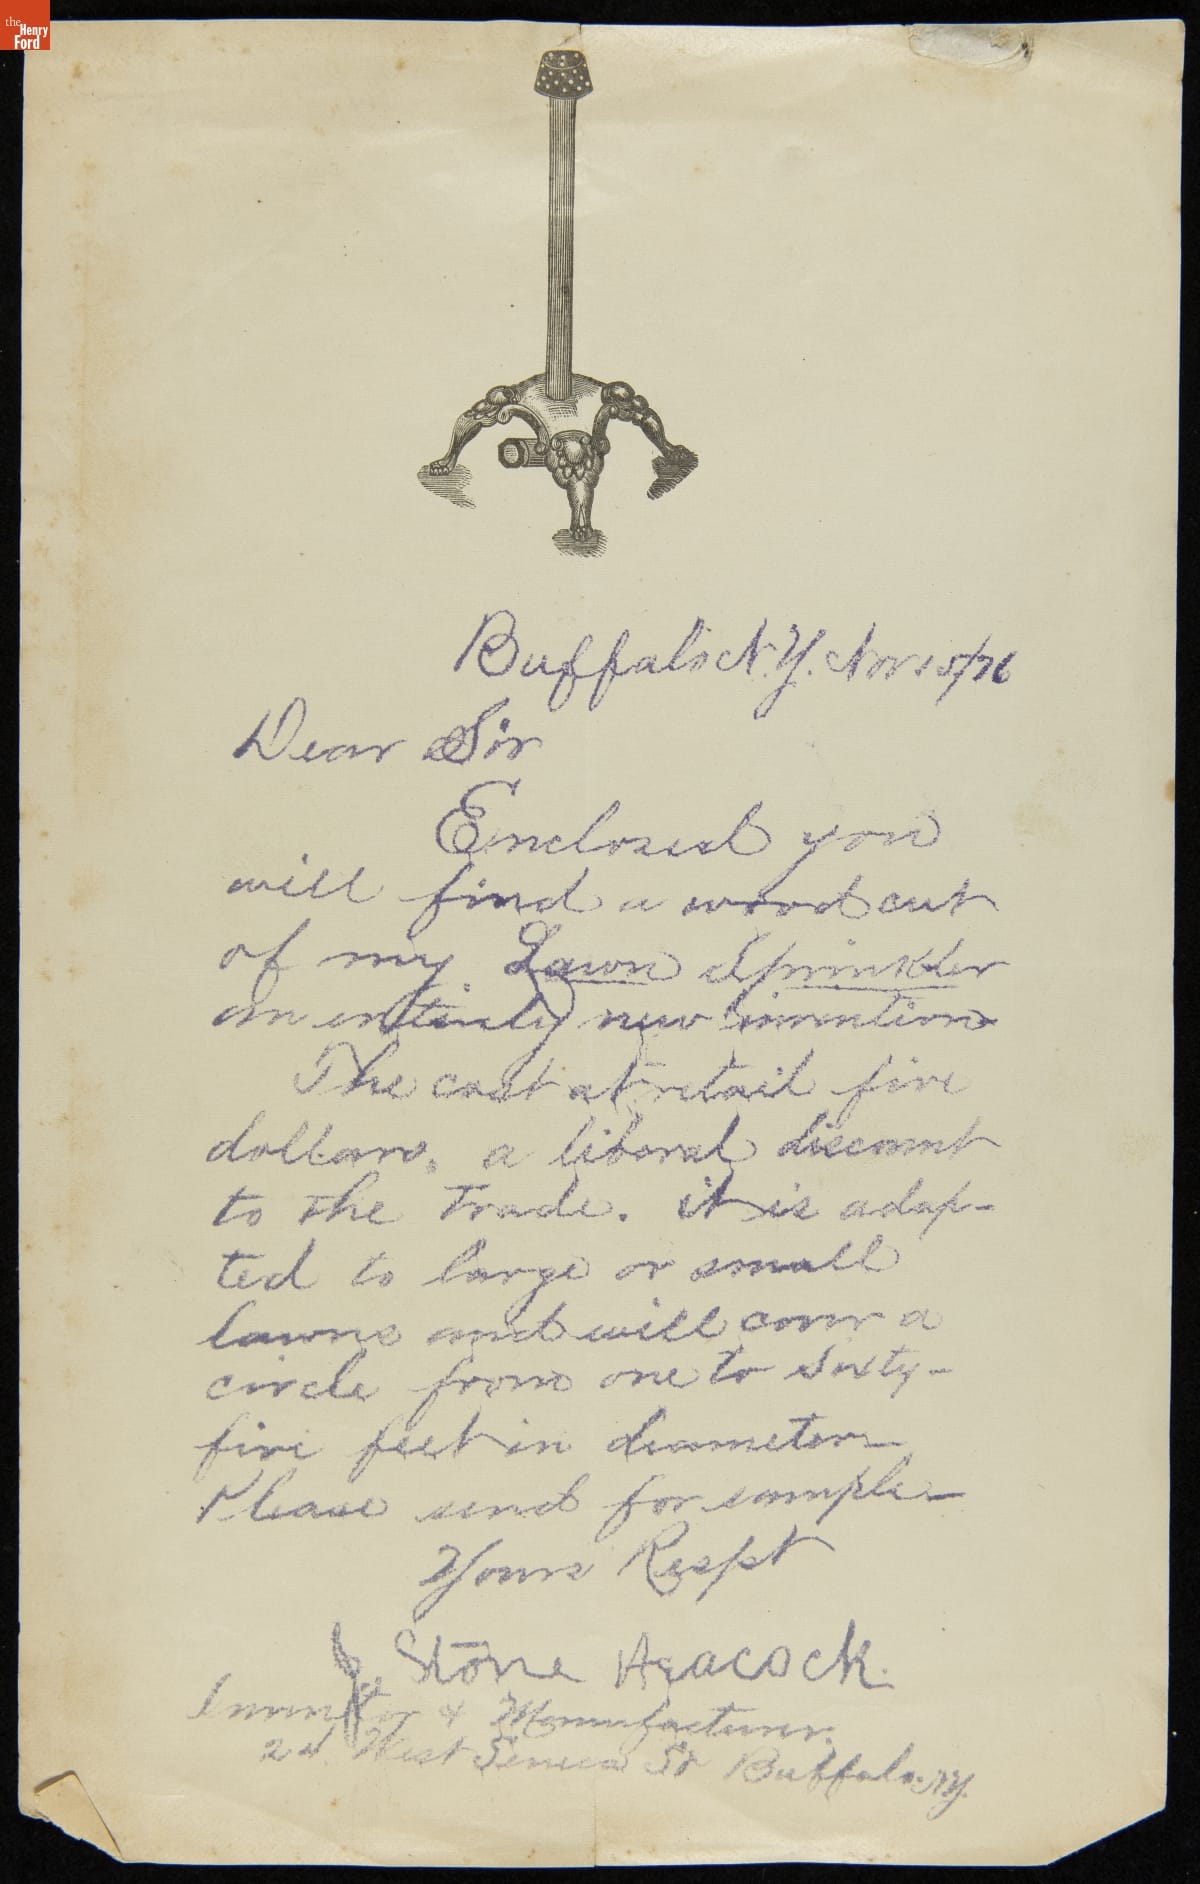 the
Henry
Ford
Buffalo N.Y. Nov 15/76
Dear Sir
Enclosed you
will find a wood cut
of my Lawn Sprinkler
an entirely new invention
The cost at retail five
dollars. a liberal discount
to the Trade. it is adap-
ted to large or small
lawns and will cover a
circle from one to Sixty-
five feet in diameter
Please send for sample
Yours Respt
J Stone Heacock.
Inventor & Manufacturer.
24 West Seneca St Buffalo. NY.